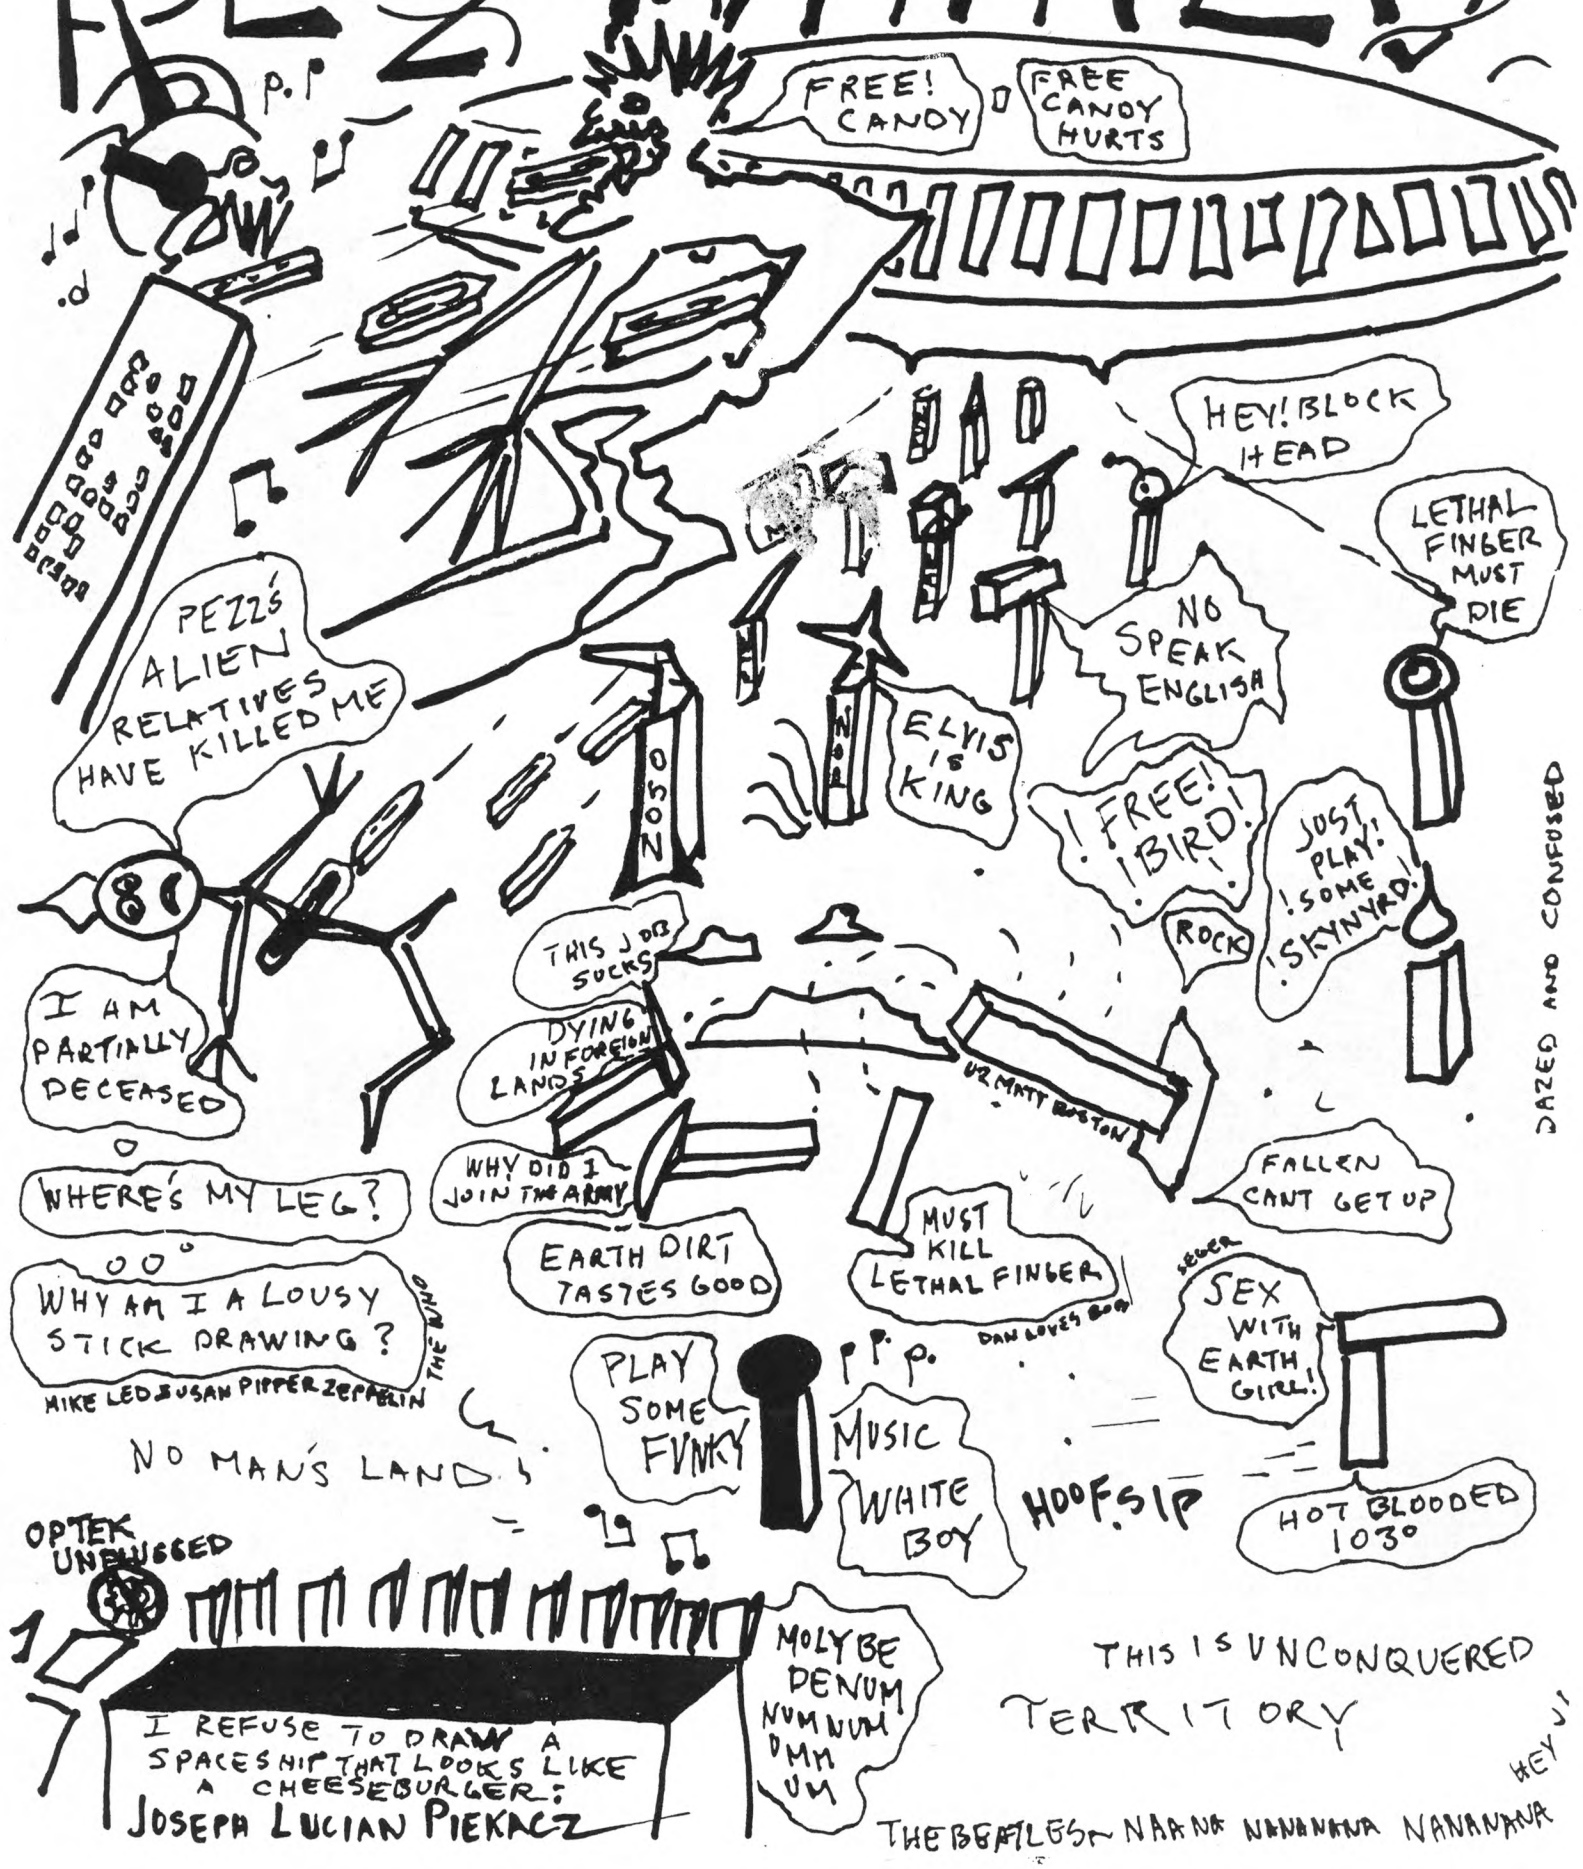 FREE!
CANDY
FREE
CANDY
HURTS
HEY! BLOCK
HEAD
LETHAL
FINGER
MUST
DIE
PEZZ'S
ALIEN
RELATIVES
HAVE KILLED ME
NO
SPEAK
ENGLISH
ELVIS
IS
KING
! FREE!
! BIRD!
JUST
PLAY!
! SOME
! SKYNYRD!
ROCK
DAZED AND CONFUSED
THIS JOB
SUCKS
I AM
PARTIALLY
DECEASED
DYING
IN FOREIGN
LANDS
U2 MATT BUSTON
WHY DID I
JOIN THE ARMY
FALLEN
CANT GET UP
WHERE'S MY LEG?
EARTH DIRT
TASTES GOOD
MUST
KILL
LETHAL FINGER
DAN LOVES BOB
SEGER
SEX
WITH
EARTH
GIRL!
WHY AM I A LOUSY
STICK DRAWING?
MIKE LED SUSAN PIPPER ZEPPELIN
PLAY
SOME
FUNKY
MUSIC
WHITE
BOY
NO MAN'S LAND
HOOF.SIP
HOT BLOODED
103°
OPTEK
UNPLUGGED
MOLYBE
DENUM
NUM NUM
UMM
UM
THIS IS UNCONQUERED
TERRITORY
I REFUSE TO DRAW A
SPACESHIP THAT LOOKS LIKE
A CHEESEBURGER:
JOSEPH LUCIAN PIEKACZ
HEY J!
THE BEATLES~ NAANA NANANANA NANANANA